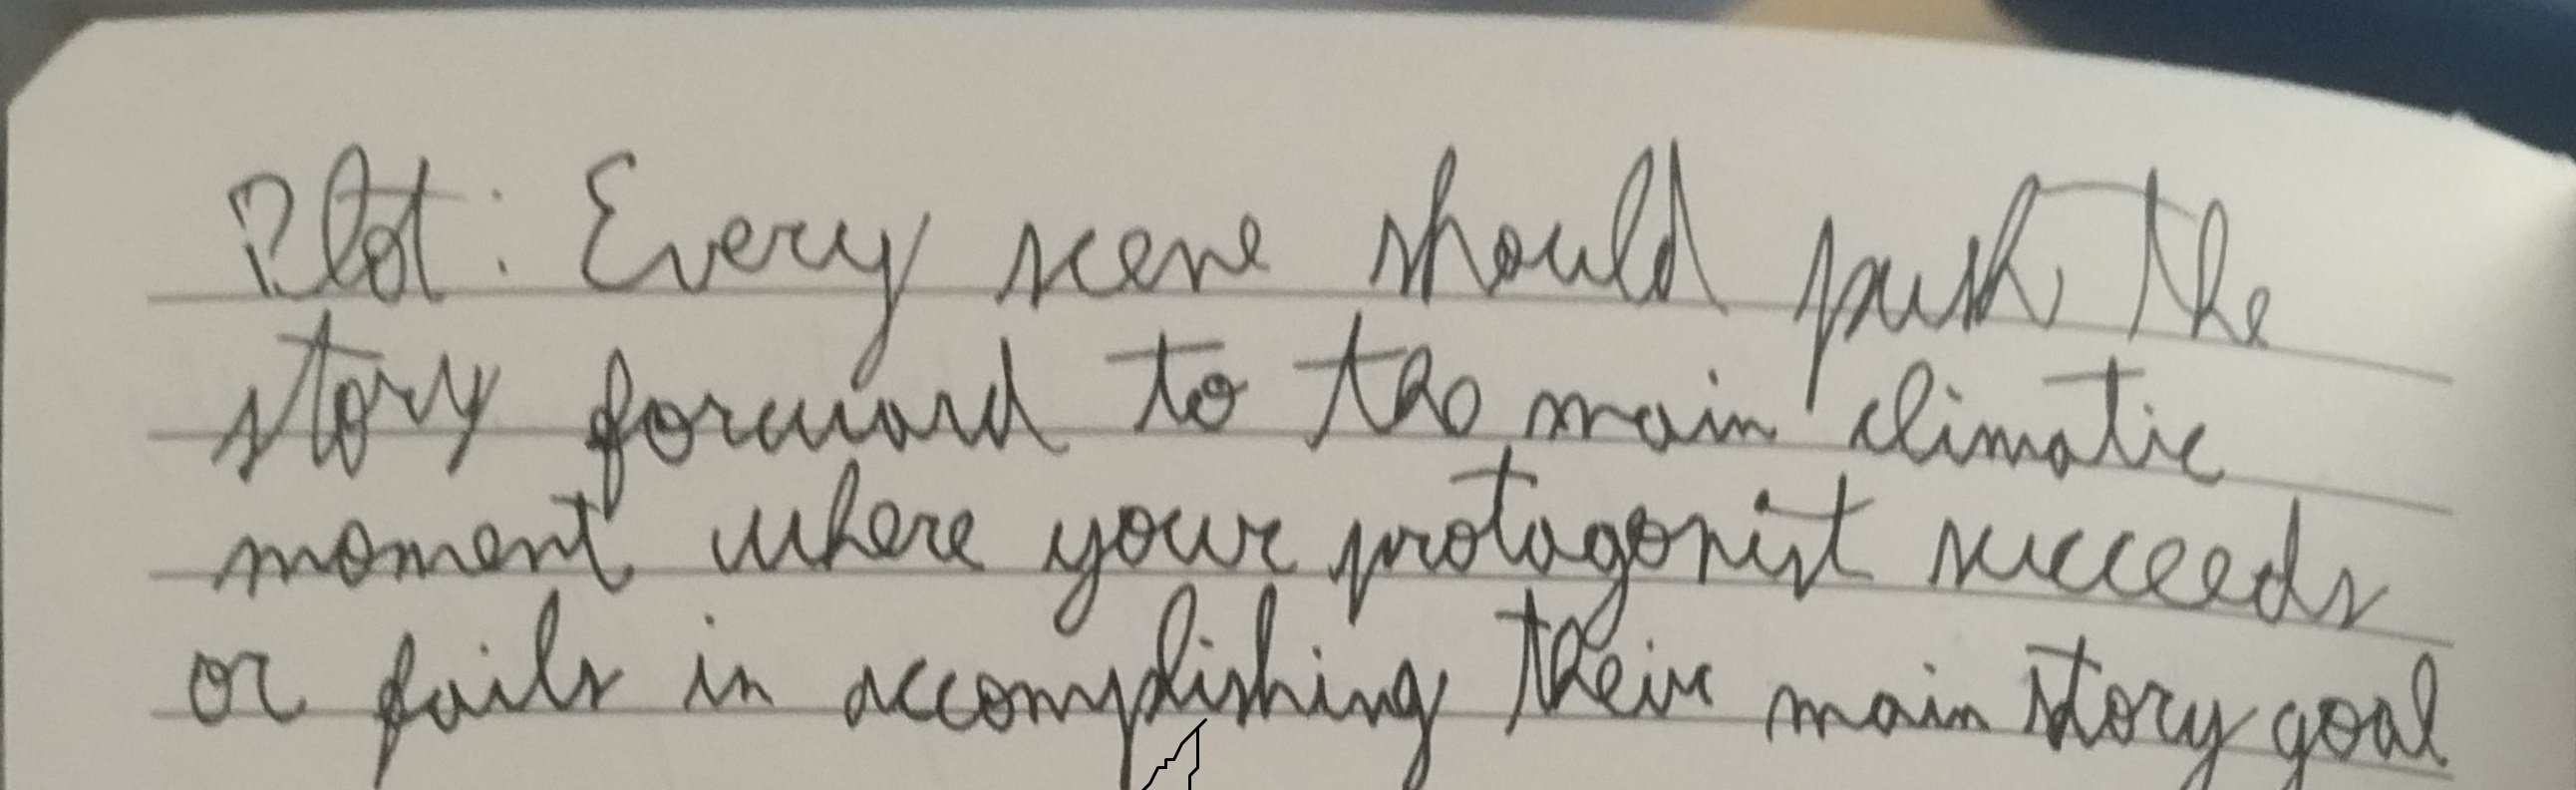 Plot: Every scene should push the
story forward to the main climatic
moment where your protagonist succeeds
or fails in accomplishing their main story goal